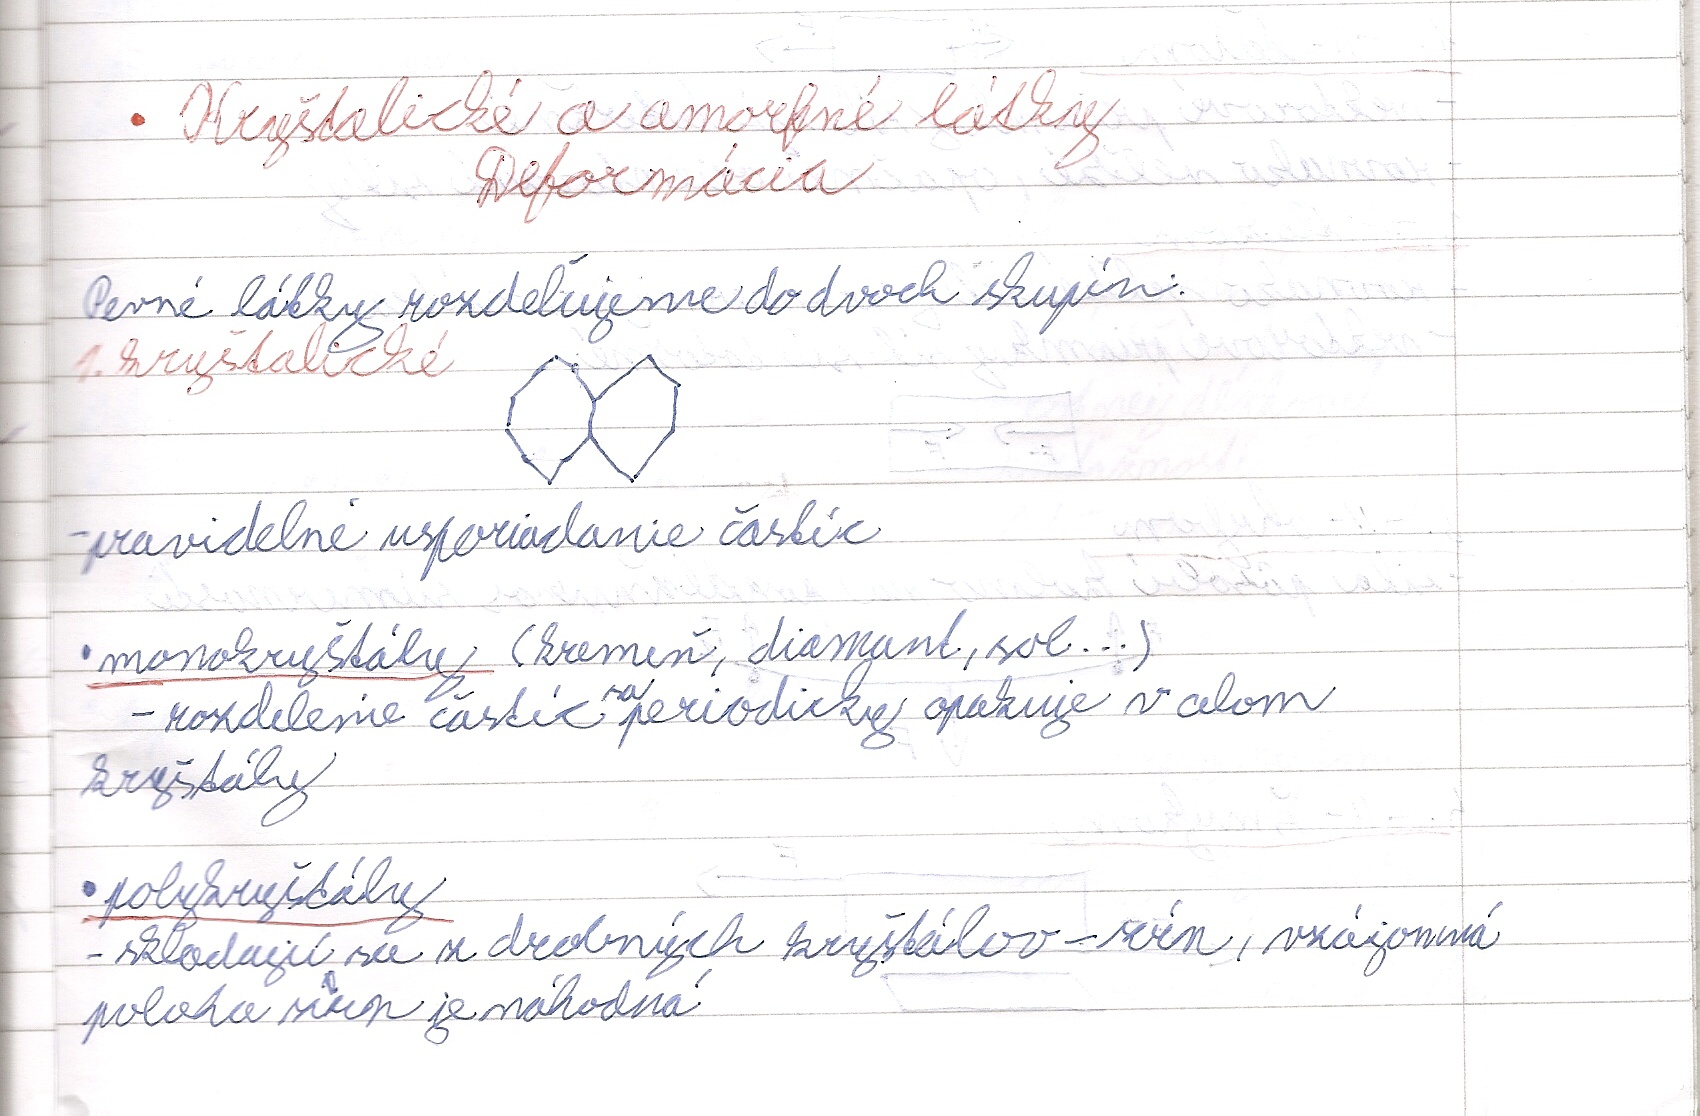 • Kryštalické a amorfné látky
Deformácia
Pevné látky rozdeľujeme do dvoch skupín:
1. kryštalické
-pravidelné usporiadanie častíc
• monokryštály (kremeň, diamant, sol...)
- rozdelenie častíc sa periodicky opakuje v celom
kryštály
• polykryštály
- skladajú sa z drobných kryštálov - zŕn, vzájomná
poloha zŕn je náhodná